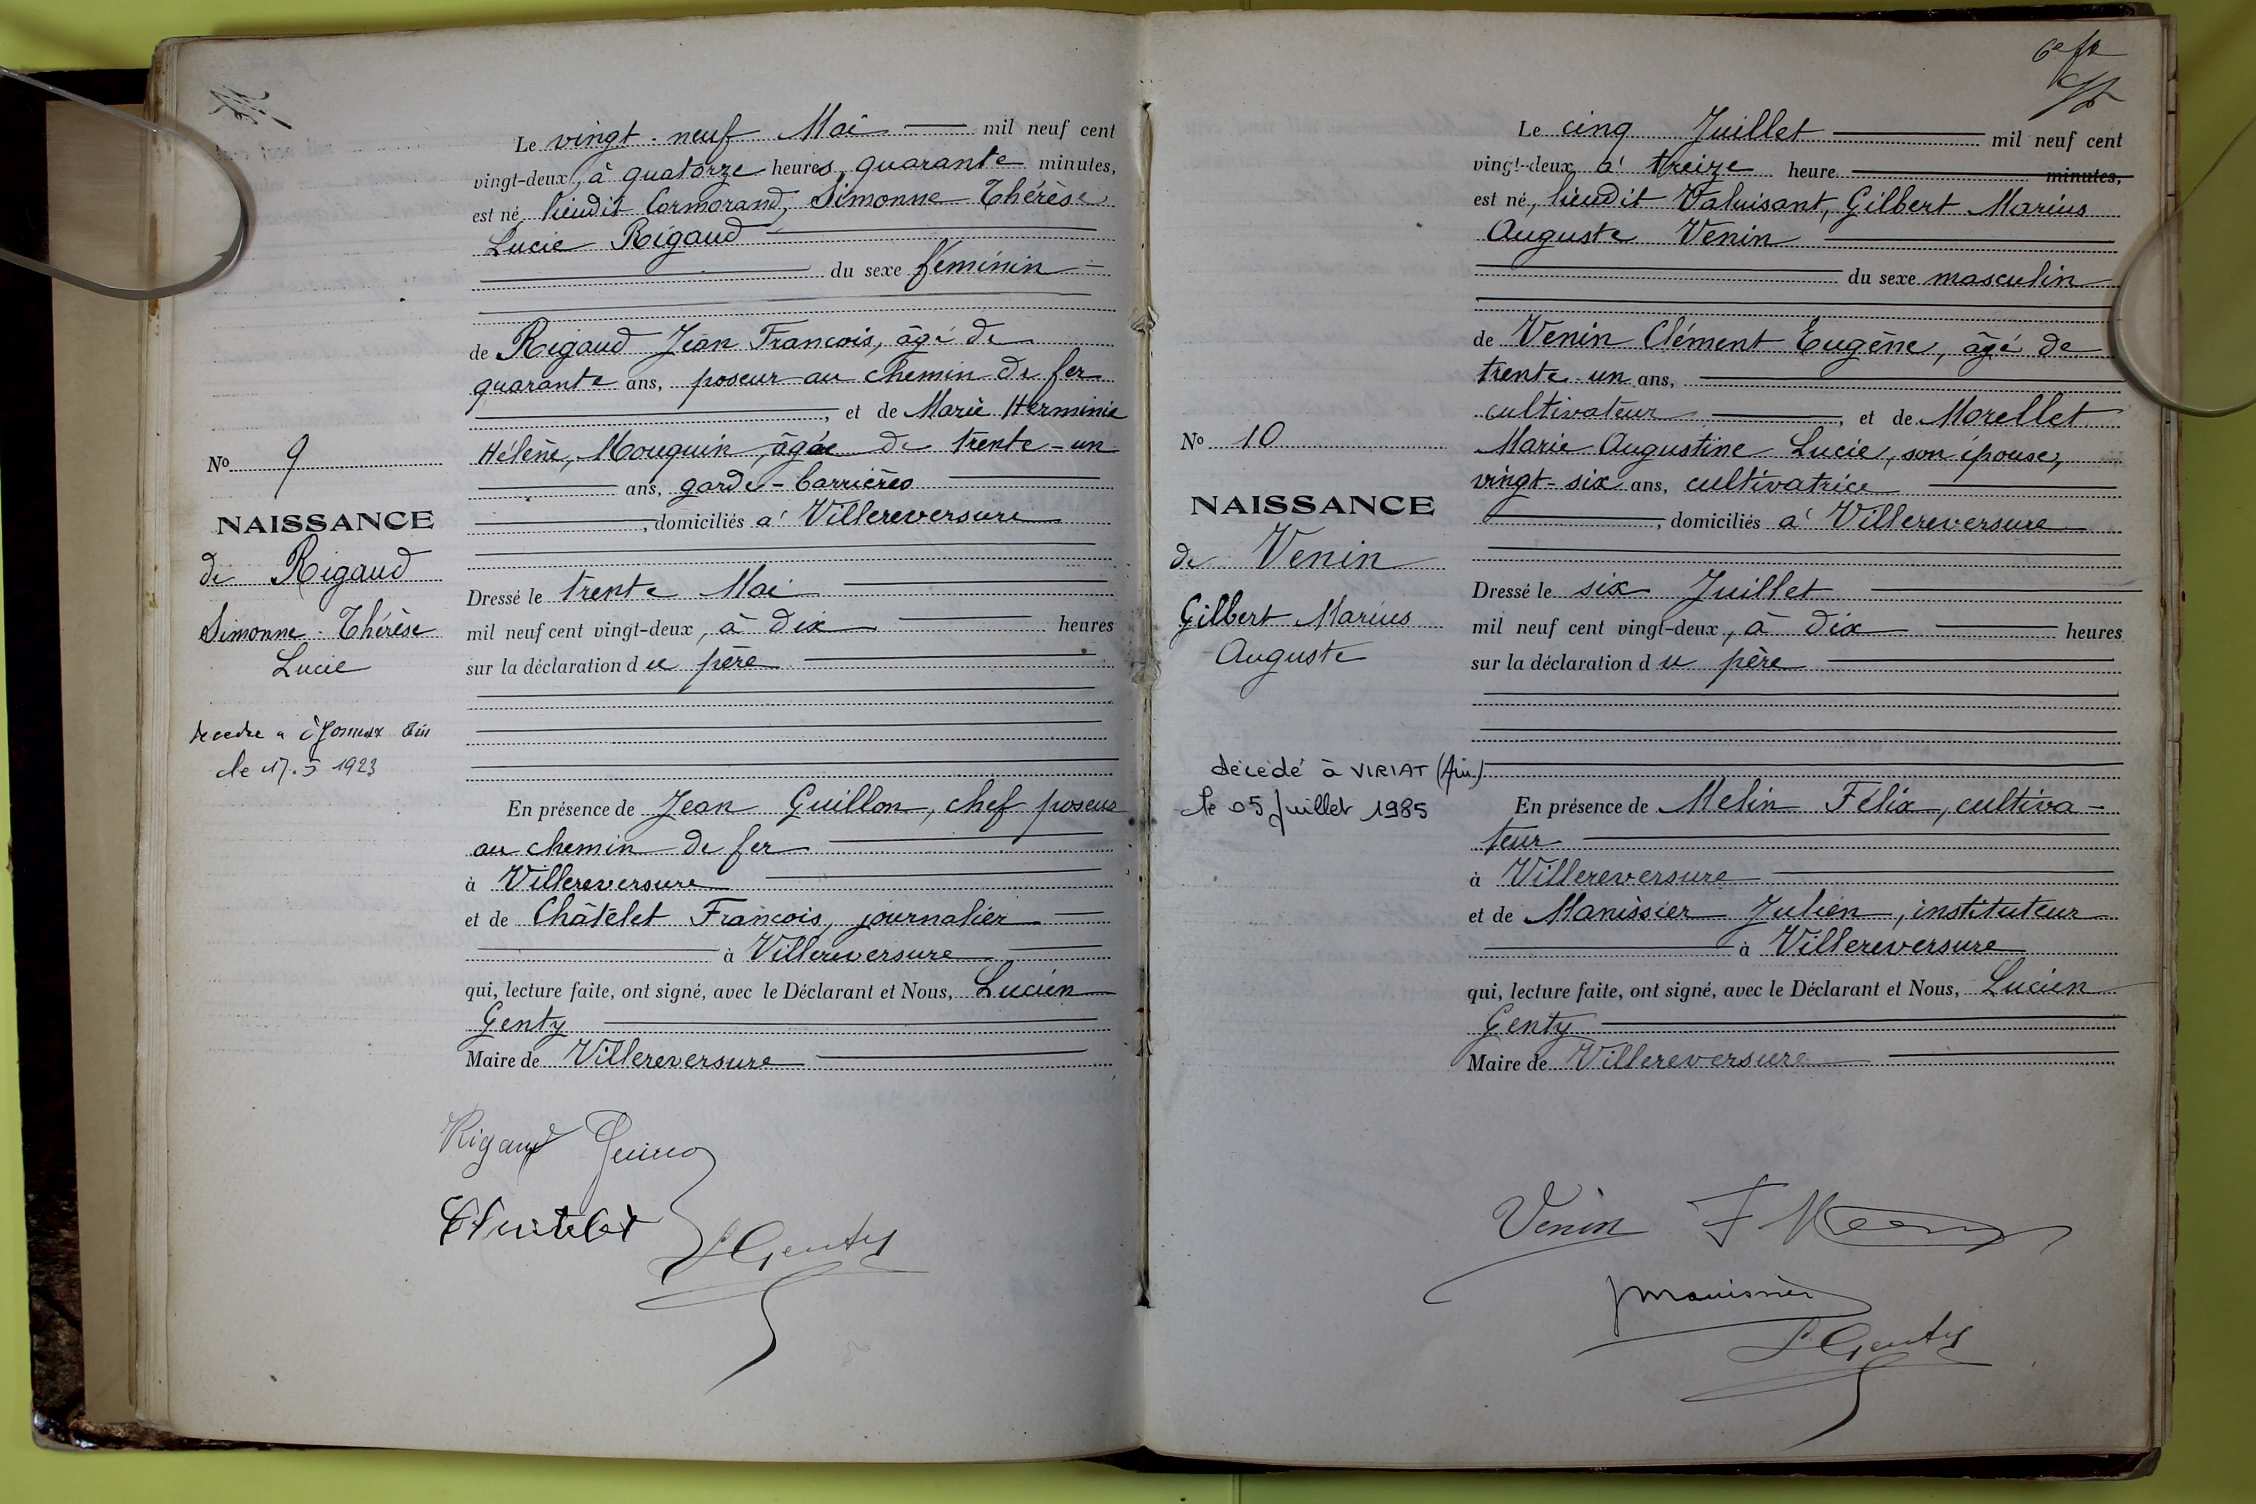 Le vingt-neuf Mai mil neuf cent
vingt-deux, à quatorze heures, quarante minutes,
est né, lieudit Cormorand, Simonne Thérèse
Lucie Rigaud
du sexe féminin
de Rigaud Jean Francois, âgé de
quarante ans, poseur au chemin de fer
, et de Marie Herminie
Hélène, Mouquin, âgée de trente-un
ans, garde-barrières
, domiciliés à Villereversure
Dressé le trente Mai
mil neuf cent vingt-deux, à dix heures
sur la déclaration du père
En présence de Jean Guillon, chef poseur
au chemin de fer
à Villereversure
et de Châtelet Francois, journalier
à Villereversure
qui, lecture faite, ont signé, avec le Déclarant et Nous, Lucien
Genty
Maire de Villereversure
No 9
NAISSANCE
de Rigaud
Simonne-Thérèse
Lucie
le 17.5 1923
Rigaud
Chatelet
L Genty
6e
Le cinq Juillet mil neuf cent
vingt-deux à treize heure minutes,
est né, lieudit Valuisant, Gilbert Marius
Auguste Venin
du sexe masculin
de Venin Clément Eugène, âgé de
trente-un ans,
cultivateur, et de Morellet
Marie Augustine Lucie, son épouse,
vingt-six ans, cultivatrice
, domiciliés à Villereversure
Dressé le six Juillet
mil neuf cent vingt-deux, à dix heures
sur la déclaration du père
En présence de Melin Félix, cultiva-
teur
à Villereversure
et de Manissier Julien, instituteur
à Villereversure
qui, lecture faite, ont signé, avec le Déclarant et Nous, Lucien
Genty
Maire de Villereversure
No 10
NAISSANCE
de Venin
Gilbert Marius
Auguste
décédé à VIRIAT (Ain)
le 05 Juillet 1985
Venin
J Manissier
L Genty